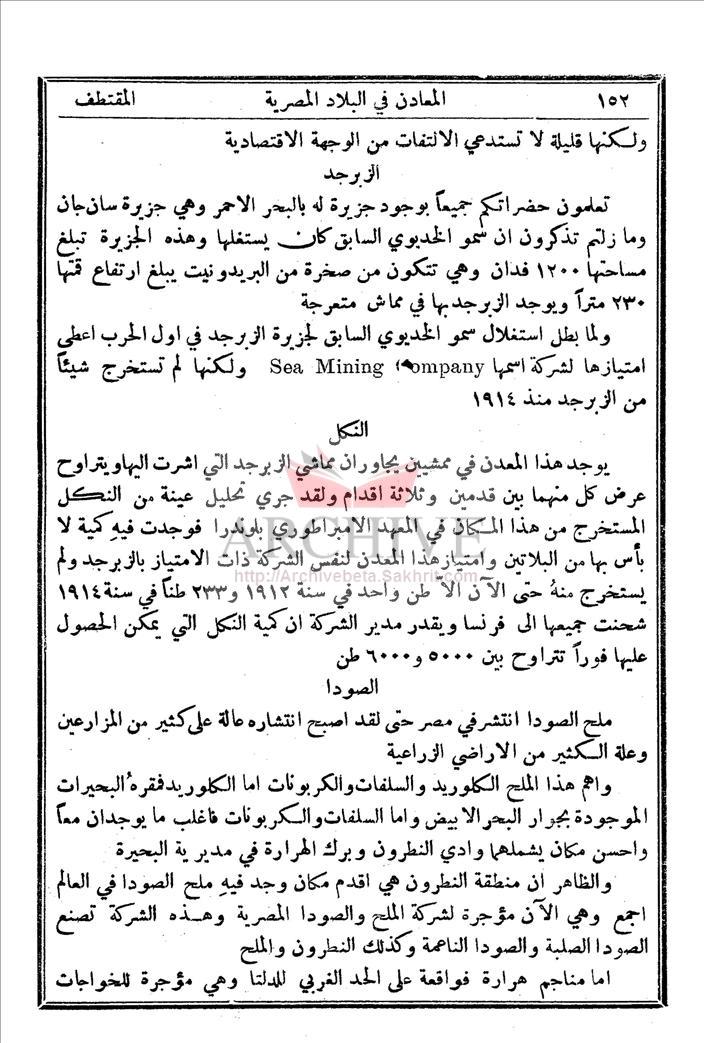 ١٥٢ المعادن في البلاد المصرية المقتطف
ولكنها قليلة لا تستدعي الالتفات من الوجهة الاقتصادية
الزبرجد
تعلمون حضراتكم جميعاً بوجود جزيرة له بالبحر الاحمر وهي جزيرة سان جان
وما زلتم تذكرون ان سمو الخديوي السابق كان يستغلها وهذه الجزيرة تبلغ
مساحتها ١٢٠٠ فدان وهي تتكون من صخرة من البريدونيت يبلغ ارتفاع قمتها
٢٣٠ متراً ويوجد الزبرجد بها في مماش متعرجة
ولما بطل استغلال سمو الخديوي السابق لجزيرة الزبرجد في اول الحرب اعطي
امتيازها لشركة اسمها Sea Mining Company ولكنها لم تستخرج شيئاً
من الزبرجد منذ ١٩١٤
النكل
يوجد هذا المعدن في ممشيين يجاوران مماشي الزبرجد التي اشرت اليها ويتراوح
عرض كل منهما بين قدمين وثلاثة اقدام ولقد جري تحليل عينة من النكل
المستخرج من هذا المكان في المعهد الامبراطوري بلوندرا فوجدت فيهِ كمية لا
بأس بها من البلاتين وامتياز هذا المعدن لنفس الشركة ذات الامتياز بالزبرجد ولم
يستخرج منهُ حتى الآن الا طن واحد في سنة ١٩١٢ و٢٣٣ طناً في سنة ١٩١٤
شحنت جميعها الى فرنسا ويقدر مدير الشركة ان كمية النكل التي يمكن الحصول
عليها فوراً تتراوح بين ٥٠٠٠ و٦٠٠٠ طن
الصودا
ملح الصودا انتشر في مصر حتى لقد اصبح انتشاره عالة على كثير من المزارعين
وعلة الكثير من الاراضي الزراعية
واهم هذا الملح الكلوريد والسلفات والكربونات اما الكلوريد فمقرهُ البحيرات
الموجودة بجوار البحر الابيض واما السلفات والكربونات فاغلب ما يوجدان معاً
واحسن مكان يشملهما وادي النطرون وبرك الهرارة في مديرية البحيرة
والظاهر ان منطقة النطرون هي اقدم مكان وجد فيهِ ملح الصودا في العالم
اجمع وهي الآن مؤجرة لشركة الملح والصودا المصرية وهذه الشركة تصنع
الصودا الصلبة والصودا الناعمة وكذلك النطرون والملح
اما مناجم هرارة فواقعة على الحد الغربي للدلتا وهي مؤجرة للخواجات
ARCHIVE
http://Archivebeta.Sakhrit.com